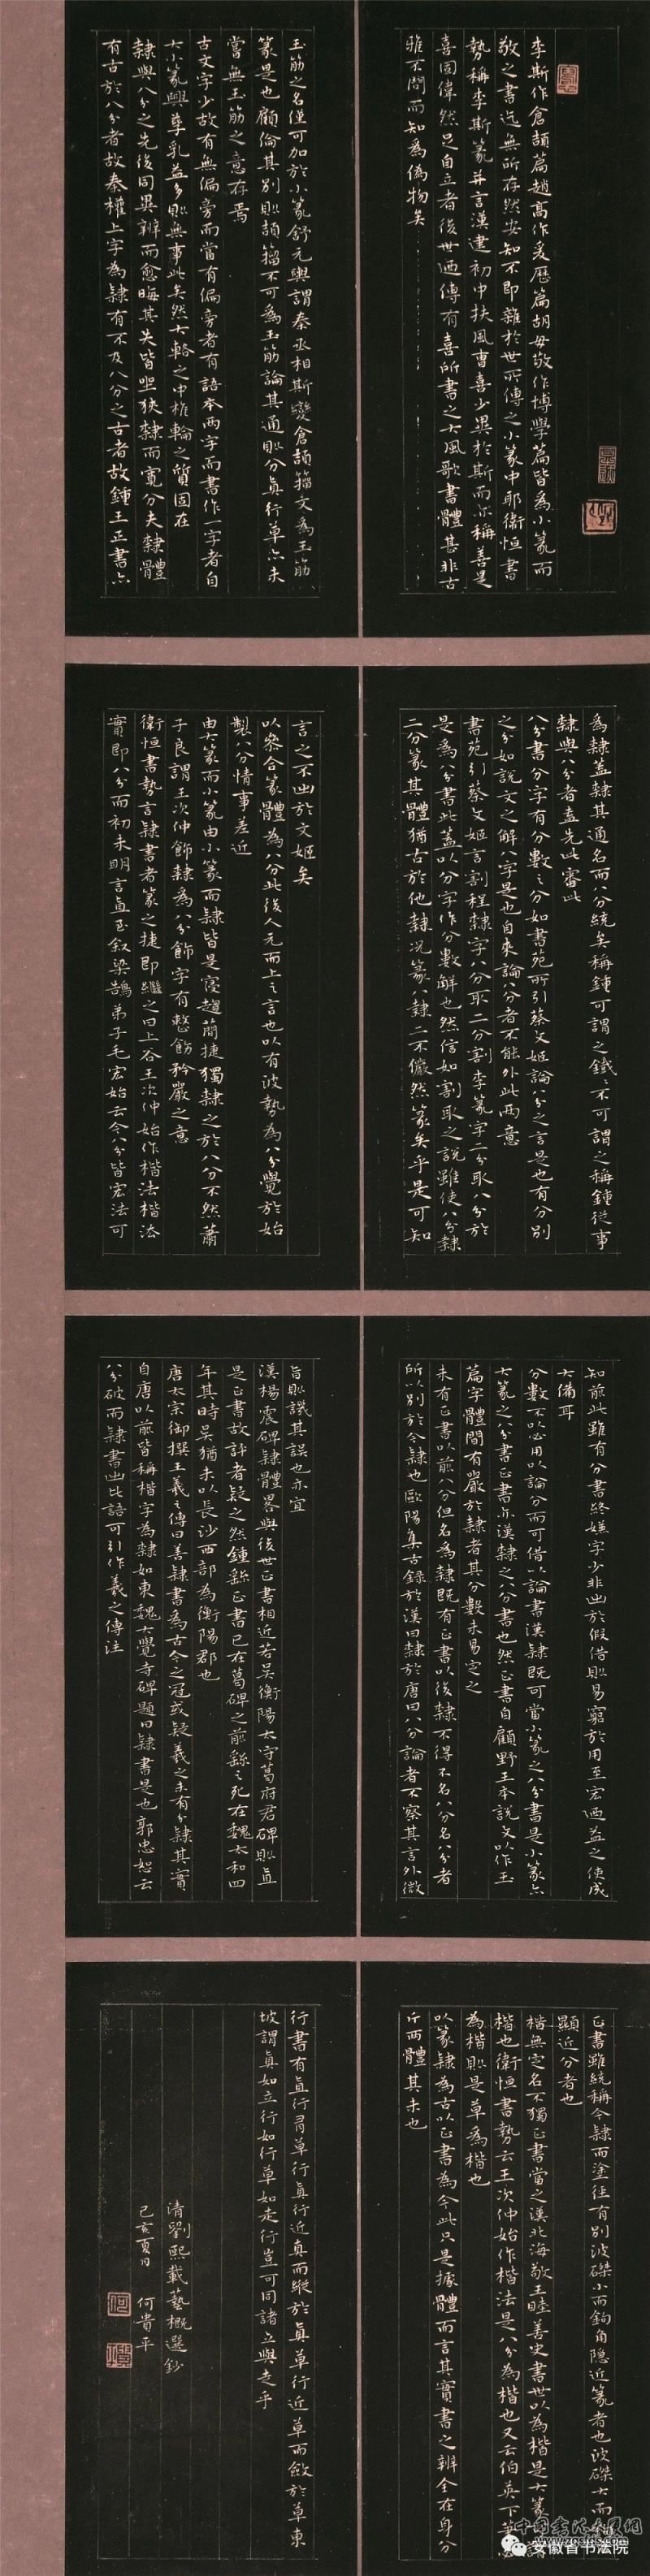 李斯作倉頡篇趙高作爰歷篇胡毋敬作博學篇皆為小篆而
敬之書迄無所存然安知不即雜於世所傳之小篆中耶衛恒書
勢稱李斯篆并言漢建初中扶風曹喜少異於斯而亦稱善是
喜固偉然足自立者後世迺傳有喜所書之大風歌書體甚非古
雅不問而知為偽物矣
玉筋之名僅可加於小篆舒元輿謂秦丞相斯變倉頡籀文為玉筋
篆是也顧倫其別則頡籀不可為玉筋論其通則分真行草亦未
嘗無玉筋之意存焉
古文字少故有無偏旁而當有偏旁者有語本兩字而書作一字者自
大小篆興孳乳益多則無事此矣然大輅之中椎輪之質固在
隸與八分之先後同異辨而愈晦其失皆坐狹隸而寬分夫隸體
有古於八分者故秦權上字為隸有不及八分之古者故鍾王正書亦
為隸蓋隸其通名而八分統矣稱鍾可謂之鐵鐵不可謂之稱鍾從事
隸與八分者盍先此審此
八分書分字有分數之分如書苑所引蔡文姬論八分之言是也有分別
之分如說文之解八字是也自來論八分者不能外此兩意
書苑引蔡文姬言割程隸字八分取二分割李篆字二分取八分於
是為八分書此蓋以分字作分數解也然信如割取之說雖使八分隸
二分篆其體猶古於他隸況篆八隸二不儼然篆矣乎是可知
言之不出於文姬矣
以參合篆體為八分此後人元而上之言也以有波勢為八分覺於始
製八分情事差近
由大篆而小篆由小篆而隸皆是寖趨簡捷獨隸之於八分不然蕭
子良謂王次仲飾隸為八分飾字有整飭矜嚴之意
衛恒書勢言隸書者篆之捷即繼之曰上谷王次仲始作楷法楷法
實即八分而初未明言直至敍梁鵠弟子毛宏始云今八分皆宏法可
知前此雖有分書終嫌字少非出於假借則易窮於用至宏迺益之使成
大備耳
分數不必用以論分而可借以論書漢隸既可當小篆之八分書是小篆亦
大篆之八分書正書亦漢隸之八分書也然正書自顧野王本說文以作玉
篇字體間有嚴於隸者其分數未易定之
未有正書以前八分但名為隸既有正書以後隸不得不名八分名八分者
所以別於今隸也歐陽集古錄於漢曰隸於唐曰八分論者不察其言外微
旨則譏其誤也亦宜
漢楊震碑隸體畧與後世正書相近若吳衡陽太守葛府君碑則直
是正書故評者疑之然鍾繇正書已在葛碑之前繇之死在魏太和四
年其時吳猶未以長沙西部為衡陽郡也
唐太宗御撰王羲之傳曰善隸書為古今之冠或疑羲之未有分隸其實
自唐以前皆稱楷字為隸如東魏大覺寺碑題曰隸書是也郭忠恕云
八分破而隸書出此語可引作羲之傳注
正書雖統稱今隸而塗徑有別波磔小而鉤角隱近篆者也波磔大而
顯近分者也
楷無定名不獨正書當之漢北海敬王睦善史書世以為楷是大篆
楷也衛恒書勢云王次仲始作楷法是八分為楷也又云伯英下筆
為楷則是草為楷也
以篆隸為古以正書為今此只是據體而言其實書之辨全在身分
斤兩體其末也
行書有真行有草行真行近真而縱於真草行近草而斂於草東
坡謂真如立行如行草如走行豈可同諸立與走乎
清劉熙載藝概選鈔
己亥夏日 何貴平
安徽省书法院